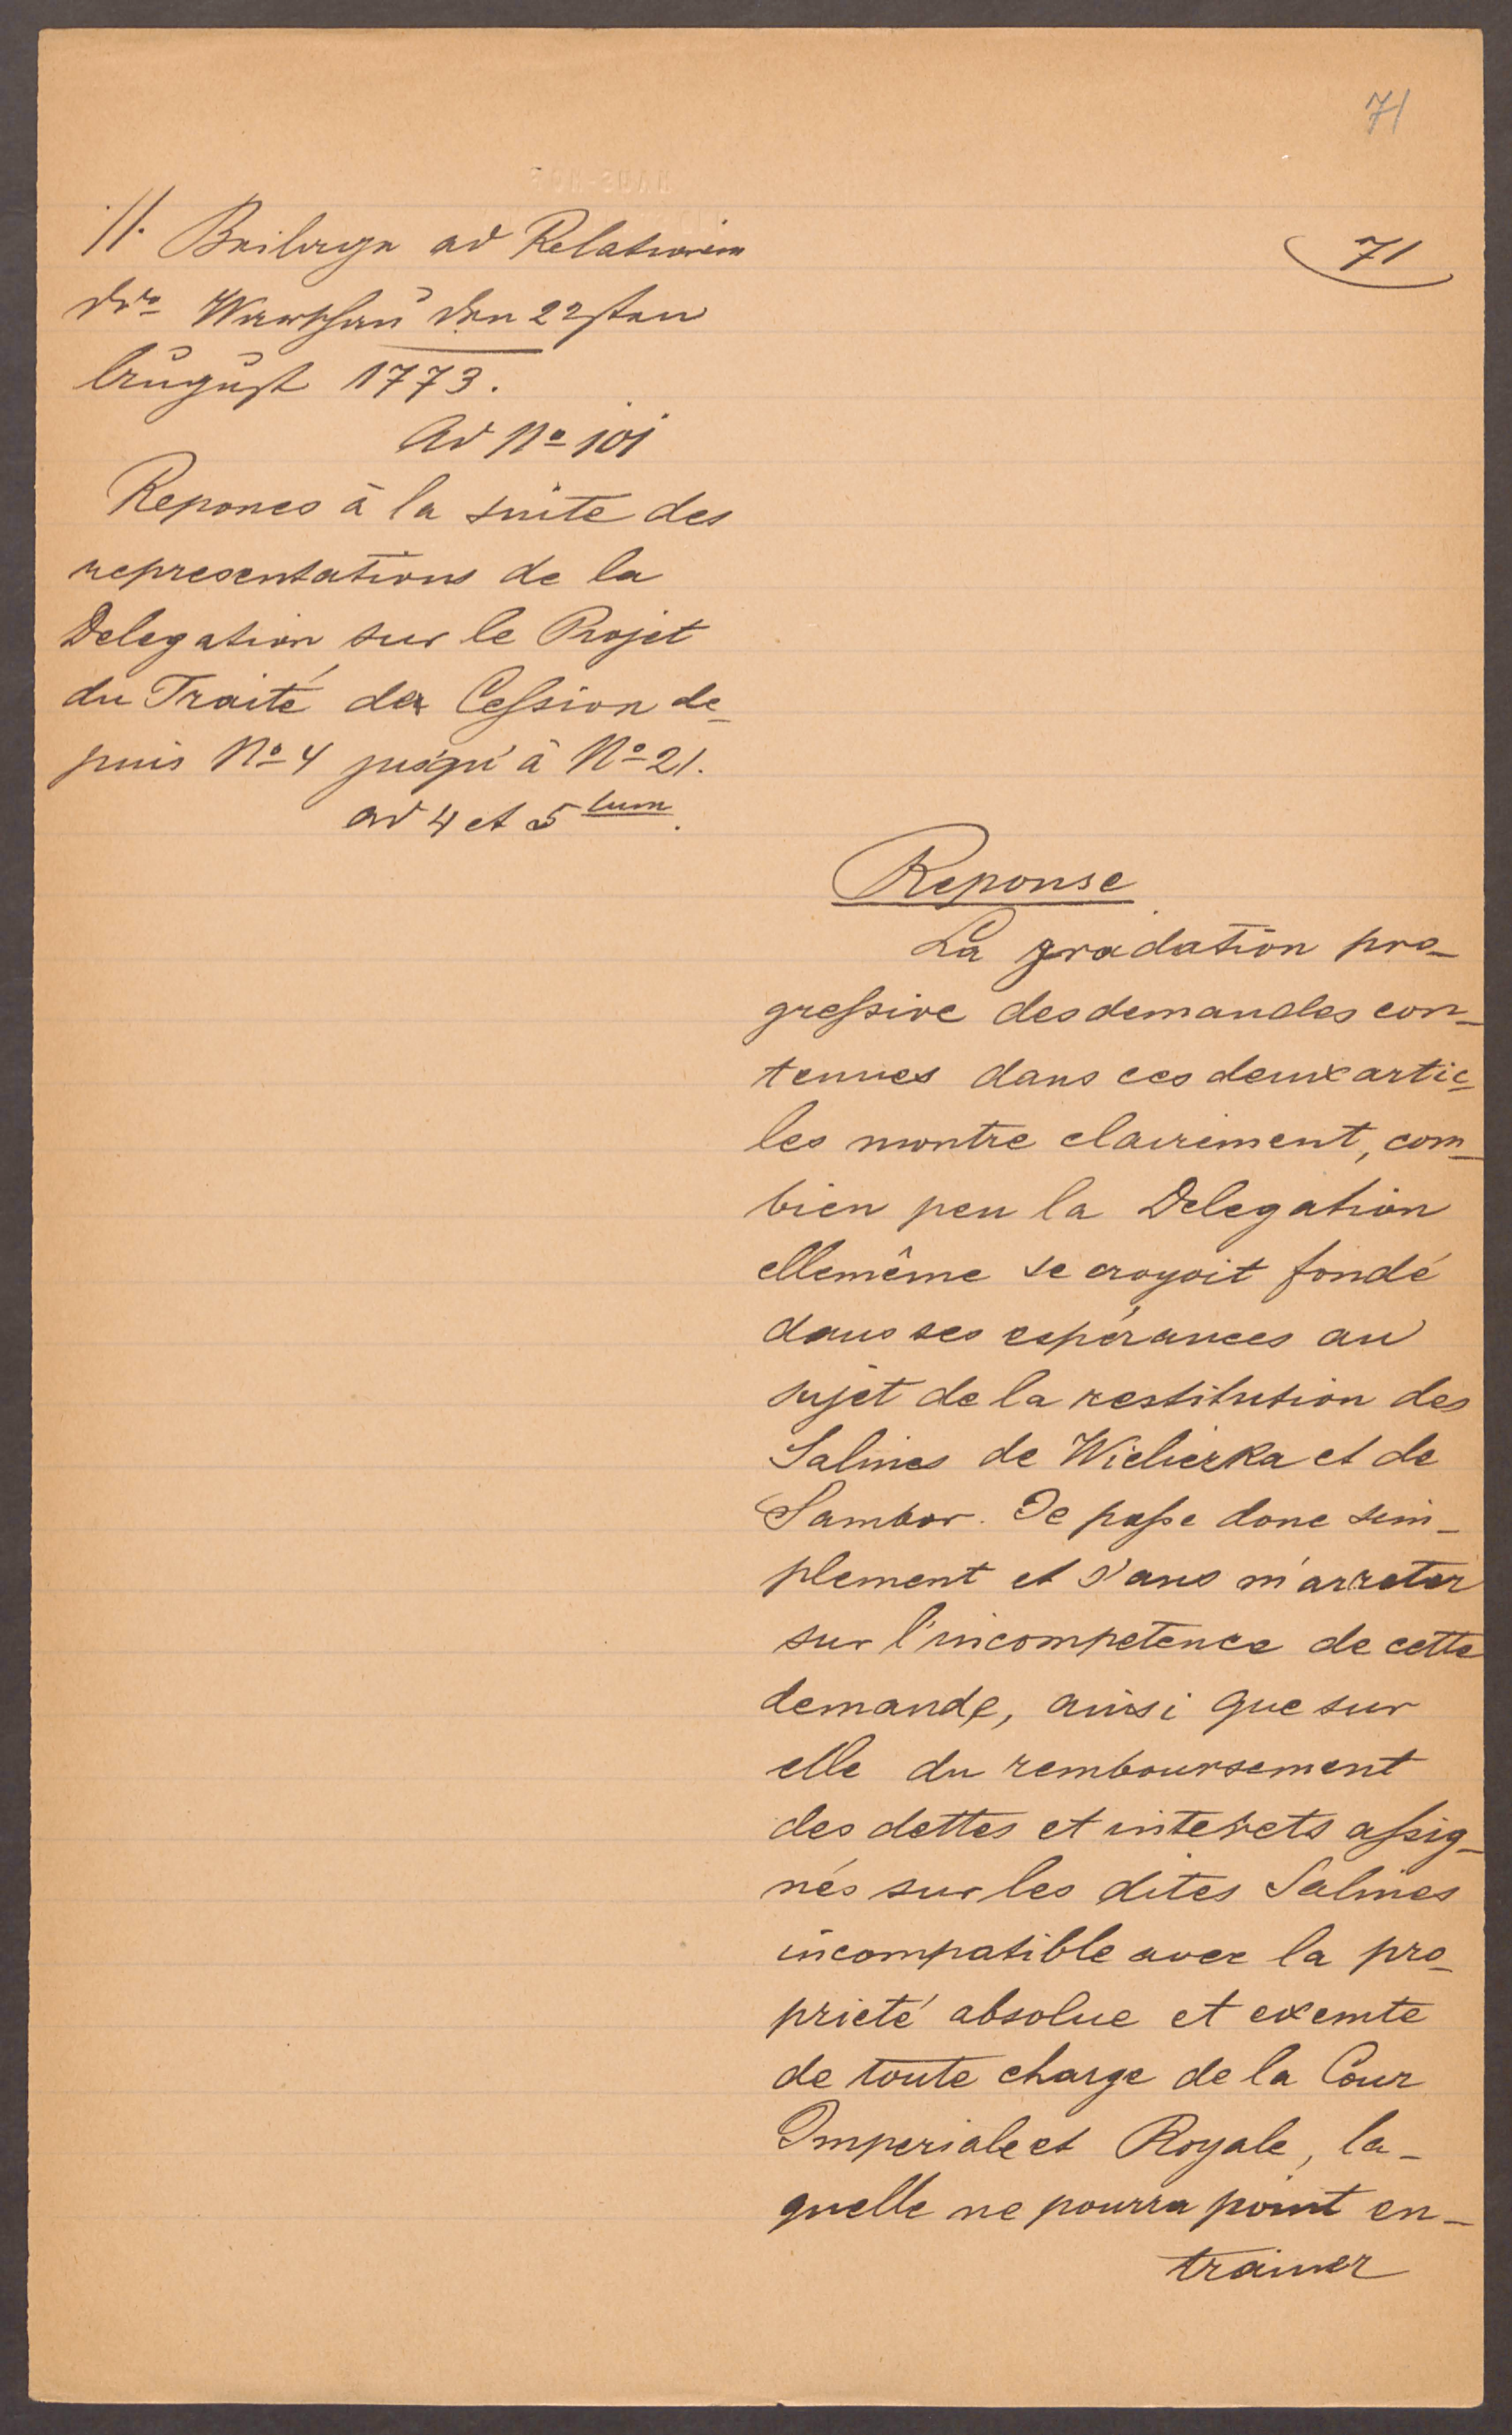 71
71
//. Beilage ad Relationem
dto Warschau den 22sten
August 1773.
ad No 101
Repones à la suite des
representations de la
Delegation sur le Projet
du Traité de Cession de-
puis No 4 jusqu'à No 21.
ad 4 et 5tum.
Reponse
La gradation pro-
gressive des demandes con-
tenues dans ces deux artic-
les montre clairement, com-
bien peu la Delegation
ellemême se croyoit fondé
dans ses espérances au
sujet de la restitution des
Salines de Wielierka et de
Sambor. Je passe donc sim-
plement et s'ans m'arreter
sur l'incompetence de cette
demande, ainsi que sur
elle du remboursement
des dettes et interets assig-
nés sur les dites Salines
incompatible avec la pro-
prieté absolue et exemte
de toute charge de la Cour
Imperiale et Royale, la-
quelle ne pourra point en-
trainer